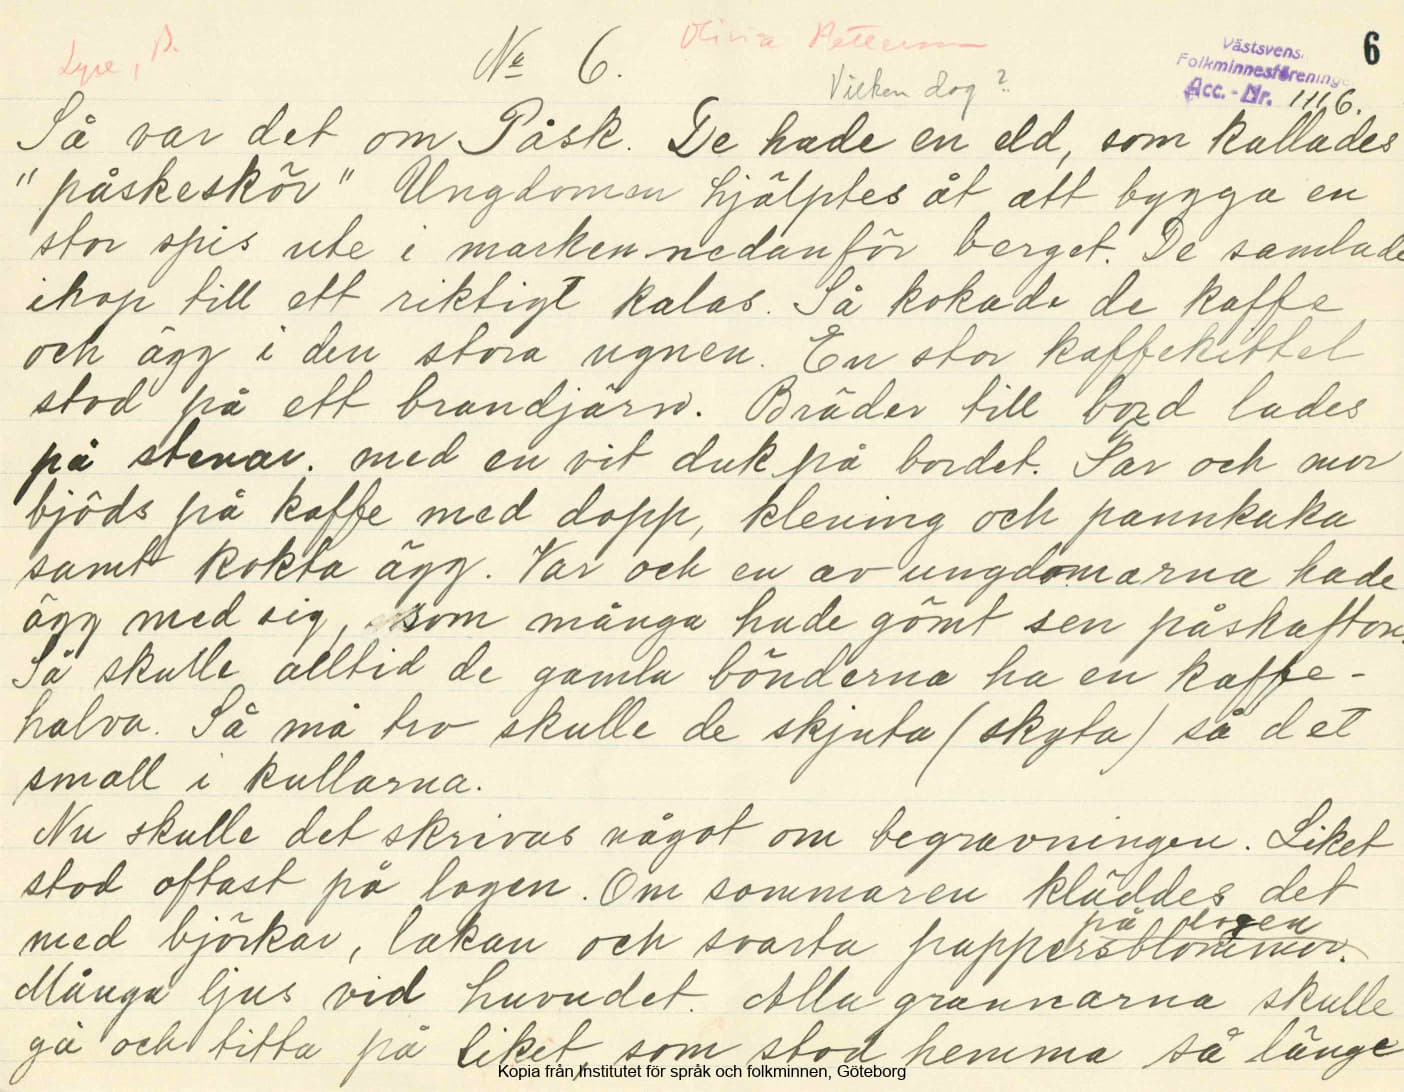 Lyse, B.
No 6.
Olivia Pettersson
Vilken dag?
Västsvens.
Folkminnesförening
Acc. - Nr. 1116.
6
Så var det om Påsk. De hade en eld, som kallades
"påskeskör" Ungdomen hjälptes åt att bygga en
stor spis ute i marken nedanför berget. De samlade
ihop till ett riktigt kalas. Så kokade de kaffe
och ägg i den stora ugnen. En stor kaffekittel
stod på ett brandjärn. Bräder till bord lades
på stenar. med en vit duk på bordet. Far och mor
bjöds på kaffe med dopp, klening och pannkaka
samt kokta ägg. Var och en av ungdomarna hade
ägg med sig, som många hade gömt sen påskafton.
Så skulle alltid de gamla bönderna ha en kaffe-
halva. Så må tro skulle de skjuta (skyta) så det
small i kullarna.
Nu skulle det skrivas något om begravningen. Liket
stod oftast på logen. Om sommaren kläddes det
på logen
med björkar, lakan och svarta pappersblommor.
Många ljus vid huvudet. Alla grannarna skulle
gå och titta på liket, som stod hemma så länge
Kopia från Institutet för språk och folkminnen, Göteborg